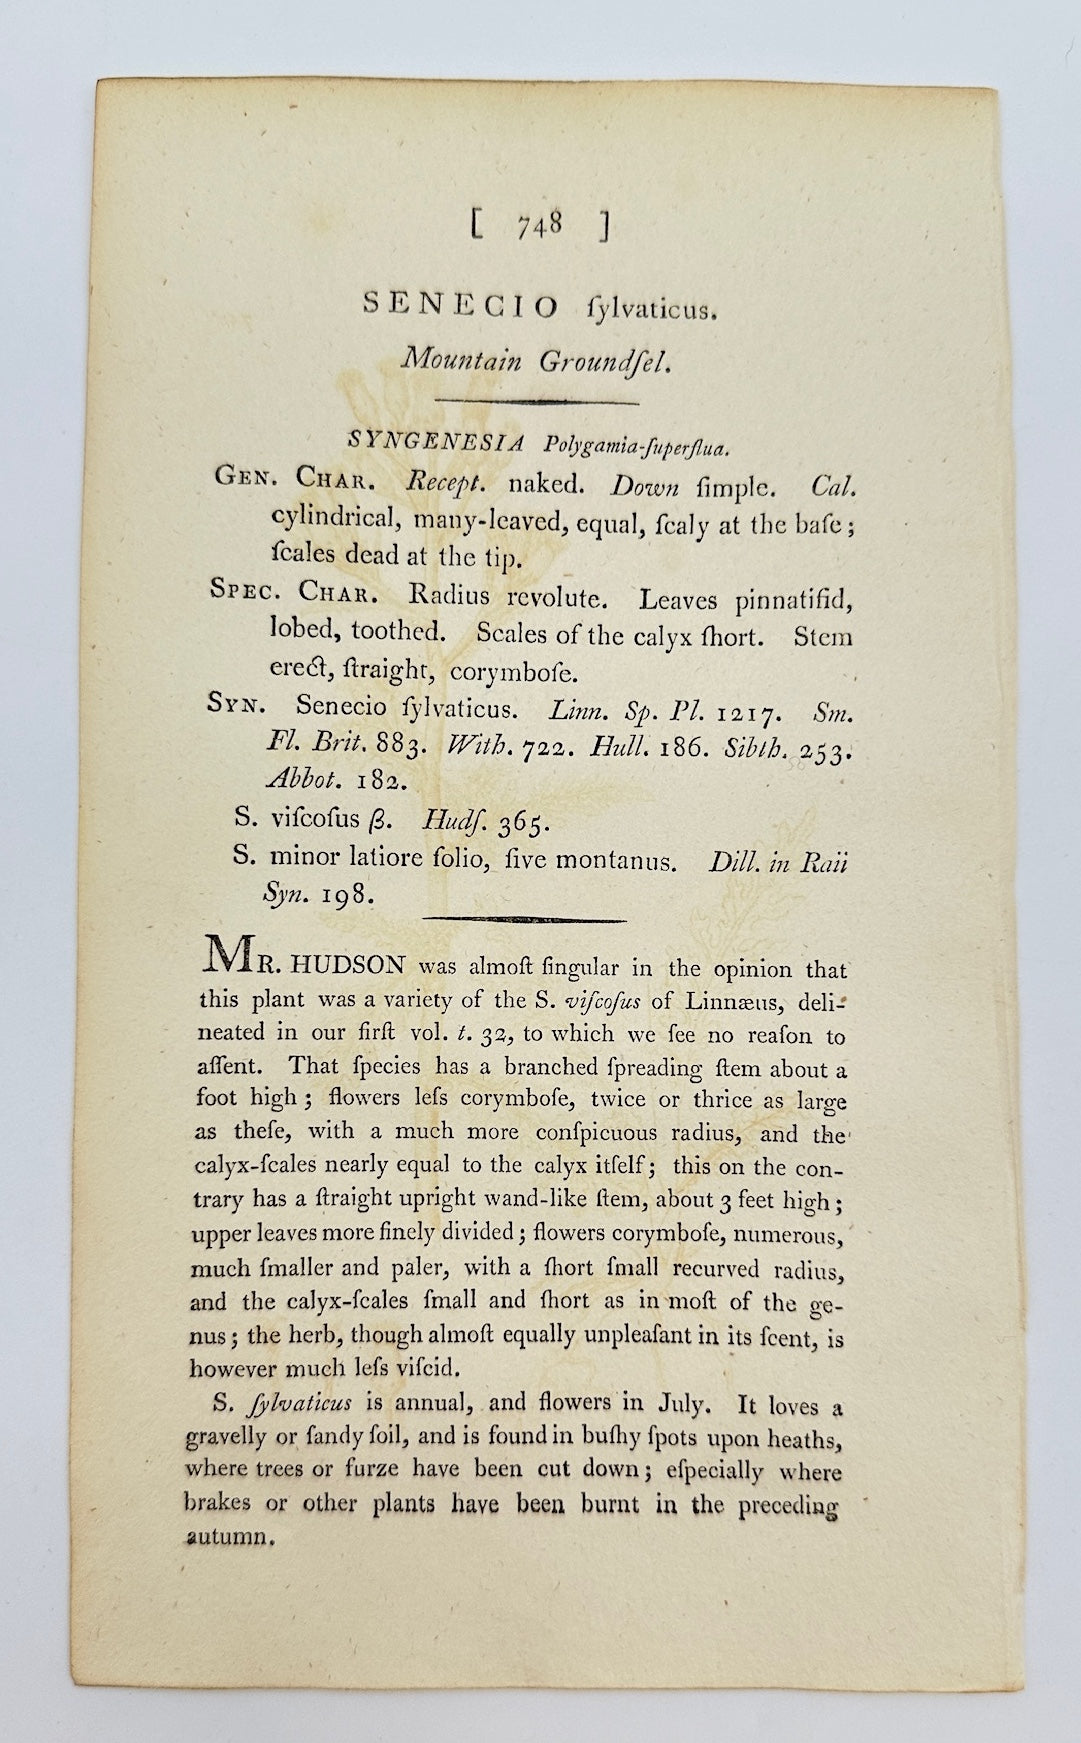 [ 748 ]
SENECIO ſylvaticus.
Mountain Groundſel.
SYNGENESIA Polygamia-ſuperflua.
GEN. CHAR. Recept. naked. Down ſimple. Cal.
cylindrical, many-leaved, equal, ſcaly at the baſe;
ſcales dead at the tip.
SPEC. CHAR. Radius revolute. Leaves pinnatifid,
lobed, toothed. Scales of the calyx ſhort. Stem
erect, ſtraight, corymboſe.
SYN. Senecio ſylvaticus. Linn. Sp. Pl. 1217. Sm.
Fl. Brit. 883. With. 722. Hull. 186. Sibth. 253.
Abbot. 182.
S. viſcoſus β. Hudſ. 365.
S. minor latiore folio, ſive montanus. Dill. in Raii
Syn. 198.
MR. HUDSON was almoſt ſingular in the opinion that
this plant was a variety of the S. viſcoſus of Linnæus, deli-
neated in our firſt vol. t. 32, to which we ſee no reaſon to
aſſent. That ſpecies has a branched ſpreading ſtem about a
foot high; flowers leſs corymboſe, twice or thrice as large
as theſe, with a much more conſpicuous radius, and the
calyx-ſcales nearly equal to the calyx itſelf; this on the con-
trary has a ſtraight upright wand-like ſtem, about 3 feet high;
upper leaves more finely divided; flowers corymboſe, numerous,
much ſmaller and paler, with a ſhort ſmall recurved radius,
and the calyx-ſcales ſmall and ſhort as in moſt of the ge-
nus; the herb, though almoſt equally unpleaſant in its ſcent, is
however much leſs viſcid.
S. ſylvaticus is annual, and flowers in July. It loves a
gravelly or ſandy ſoil, and is found in buſhy ſpots upon heaths,
where trees or furze have been cut down; eſpecially where
brakes or other plants have been burnt in the preceding
autumn.